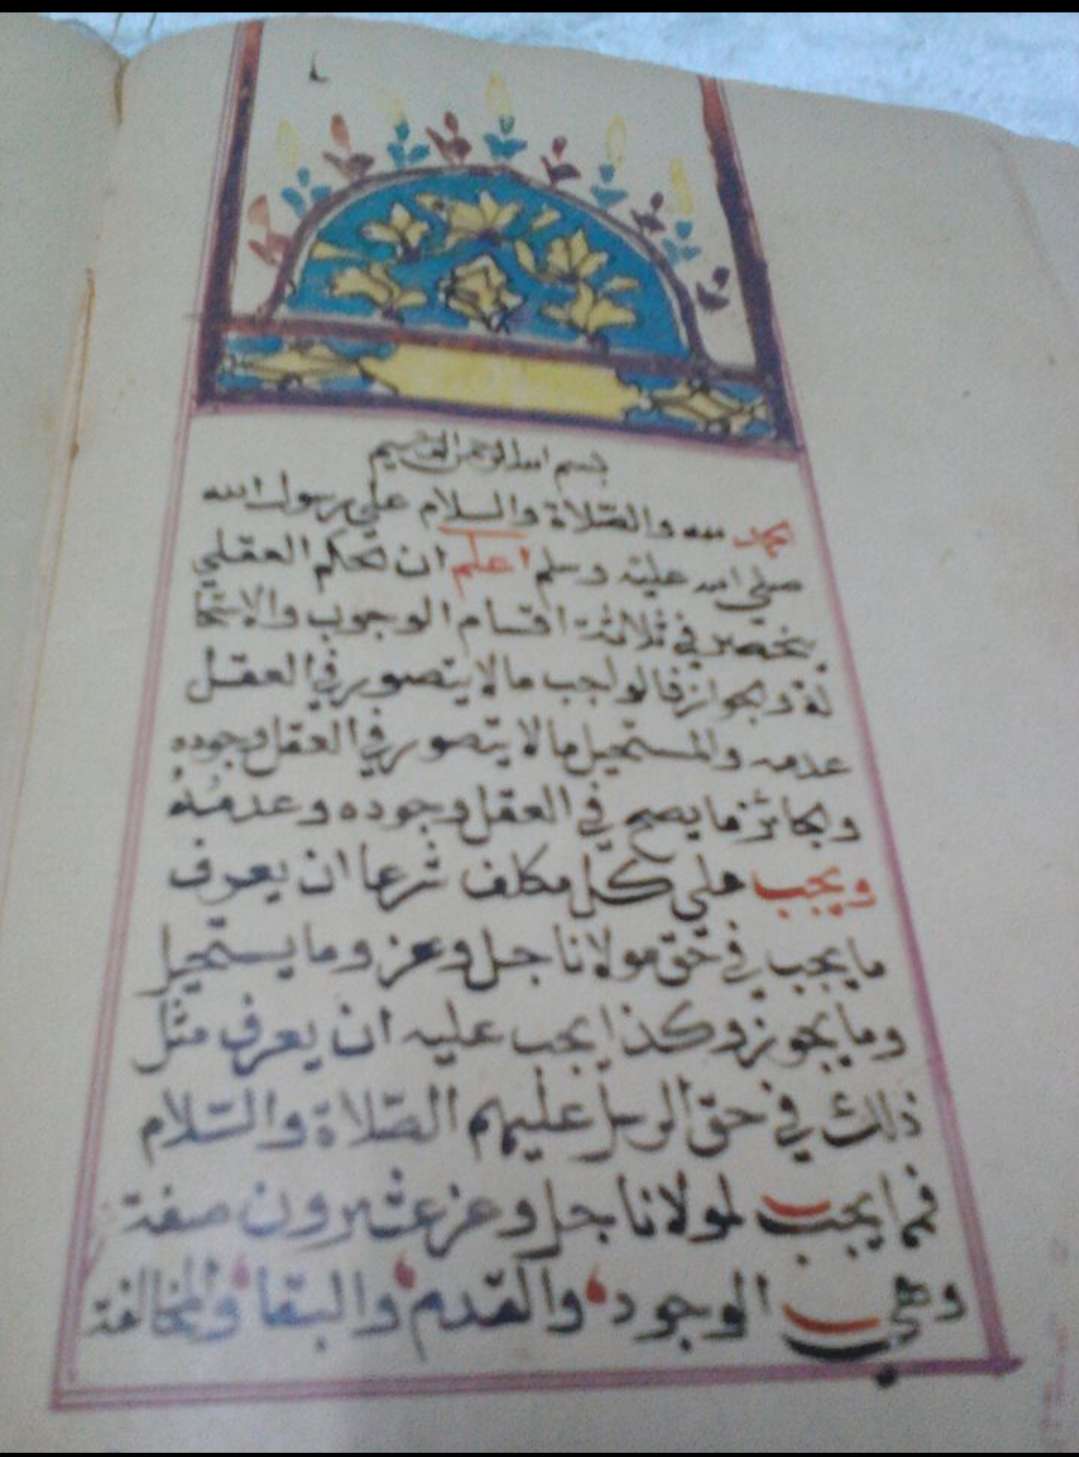 بسم الله الرحمن الرحيم
الحمد لله والصّلاة والسلام علي رسول الله
صلي الله عليه وسلم اعلم ان الحكم العقلي
ينحصر في ثلاثة اقسام الوجوب والاستحا
لة والجواز فالواجب مالا يتصور في العقل
عدمه والمستحيل مالا يتصور في العقل وجوده
والجائز ما يصح في العقل وجوده وعدمه
ويجب علي كل مكلف شرعا ان يعرف
ما يجب في حق مولانا جل وعز وما يستحيل
وما يجوز وكذا يجب عليه ان يعرف مثل
ذلك في حق الرسل عليهم الصّلاة والسّلام
فما يجب لمولانا جل وعز عشرون صفة
وهي الوجود والقدم والبقا والمخالفة